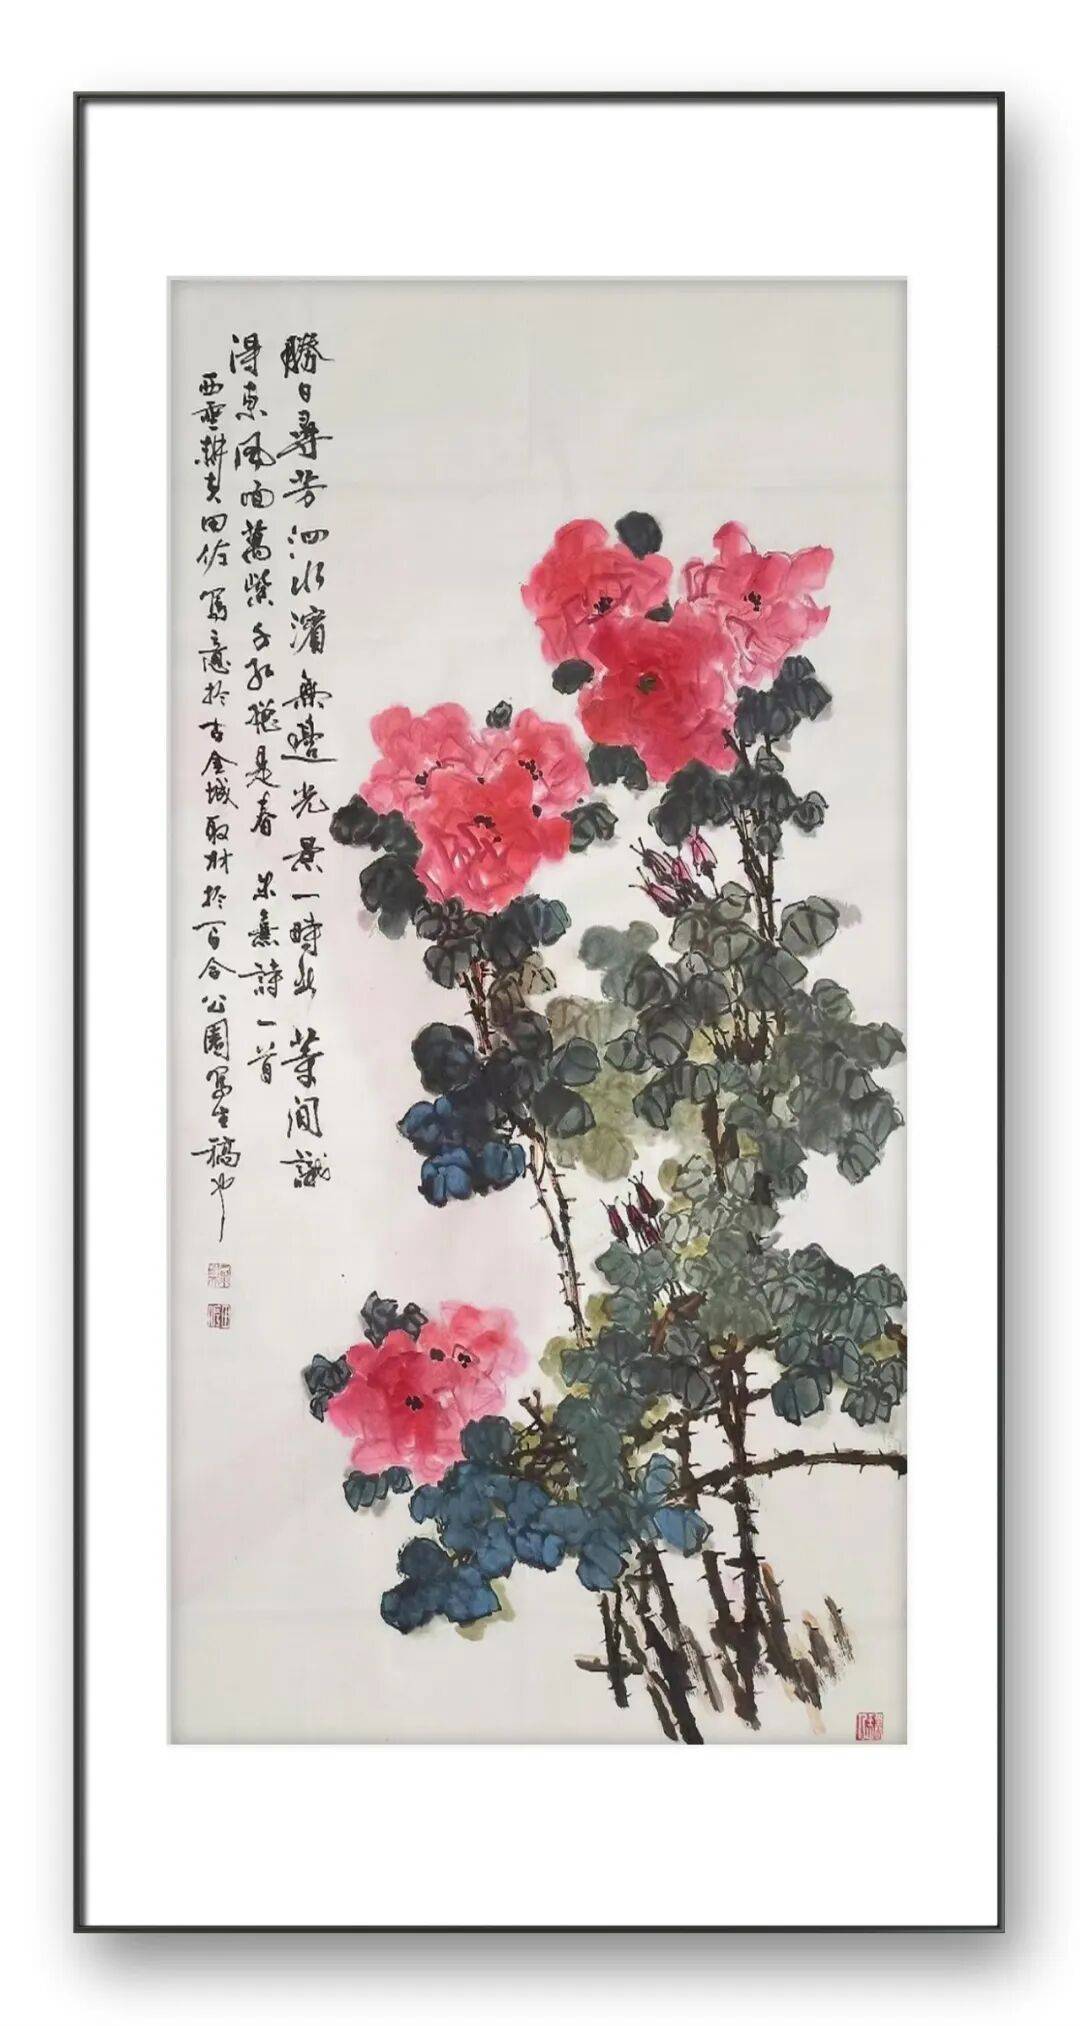 勝日尋芳泗水濱無邊光景一時新等閒識
得東風面萬紫千紅總是春 朱熹詩一首
西雲耕夫田佐寫意於古金城取材於百合公園寫生稿也